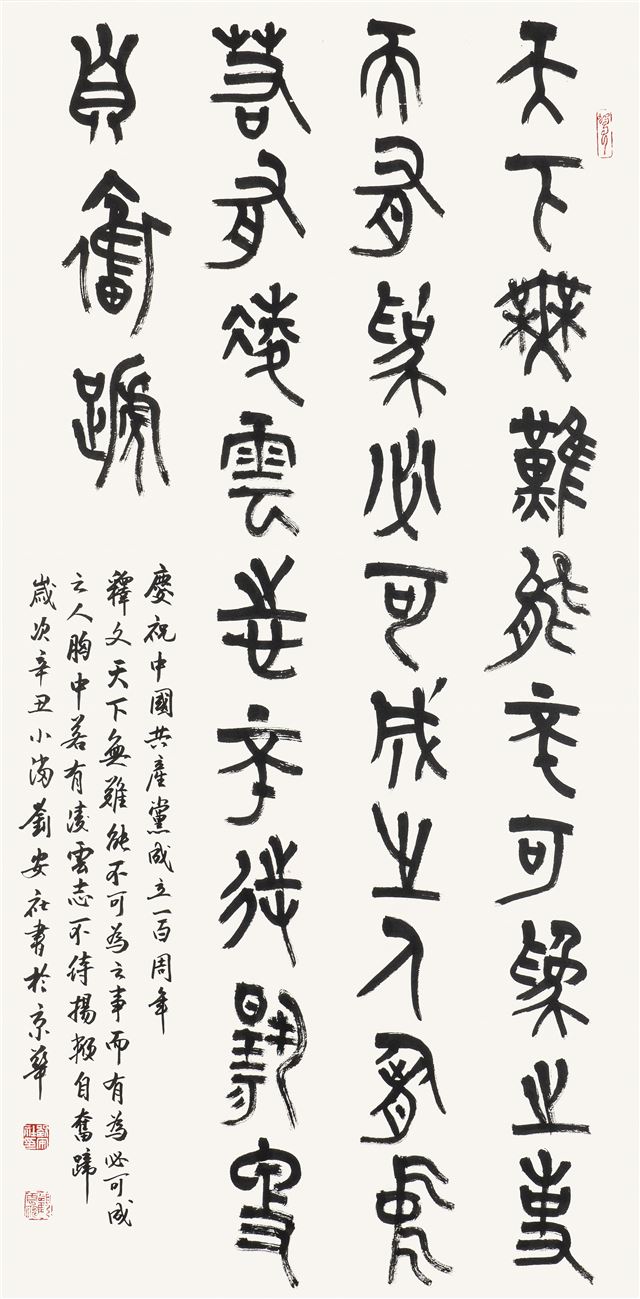 天下無難能不可為之事
而有為必可成之人胸中
若有凌雲志不待揚鞭
自奮蹄
慶祝中國共產黨成立一百周年
釋文天下無難能不可為之事而有為必可成
之人胸中若有凌雲志不待揚鞭自奮蹄
歲次辛丑小滿劉安社書於京華